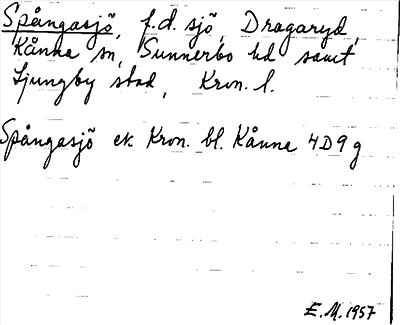 Spångasjö, f.d. sjö, Dragaryd,
Kånna sn, Sunnerbo hd samt
Ljungby stad, Kron. l.
Spångasjö ek Kron. bl. Kånna 4D9g
E.M. 1957